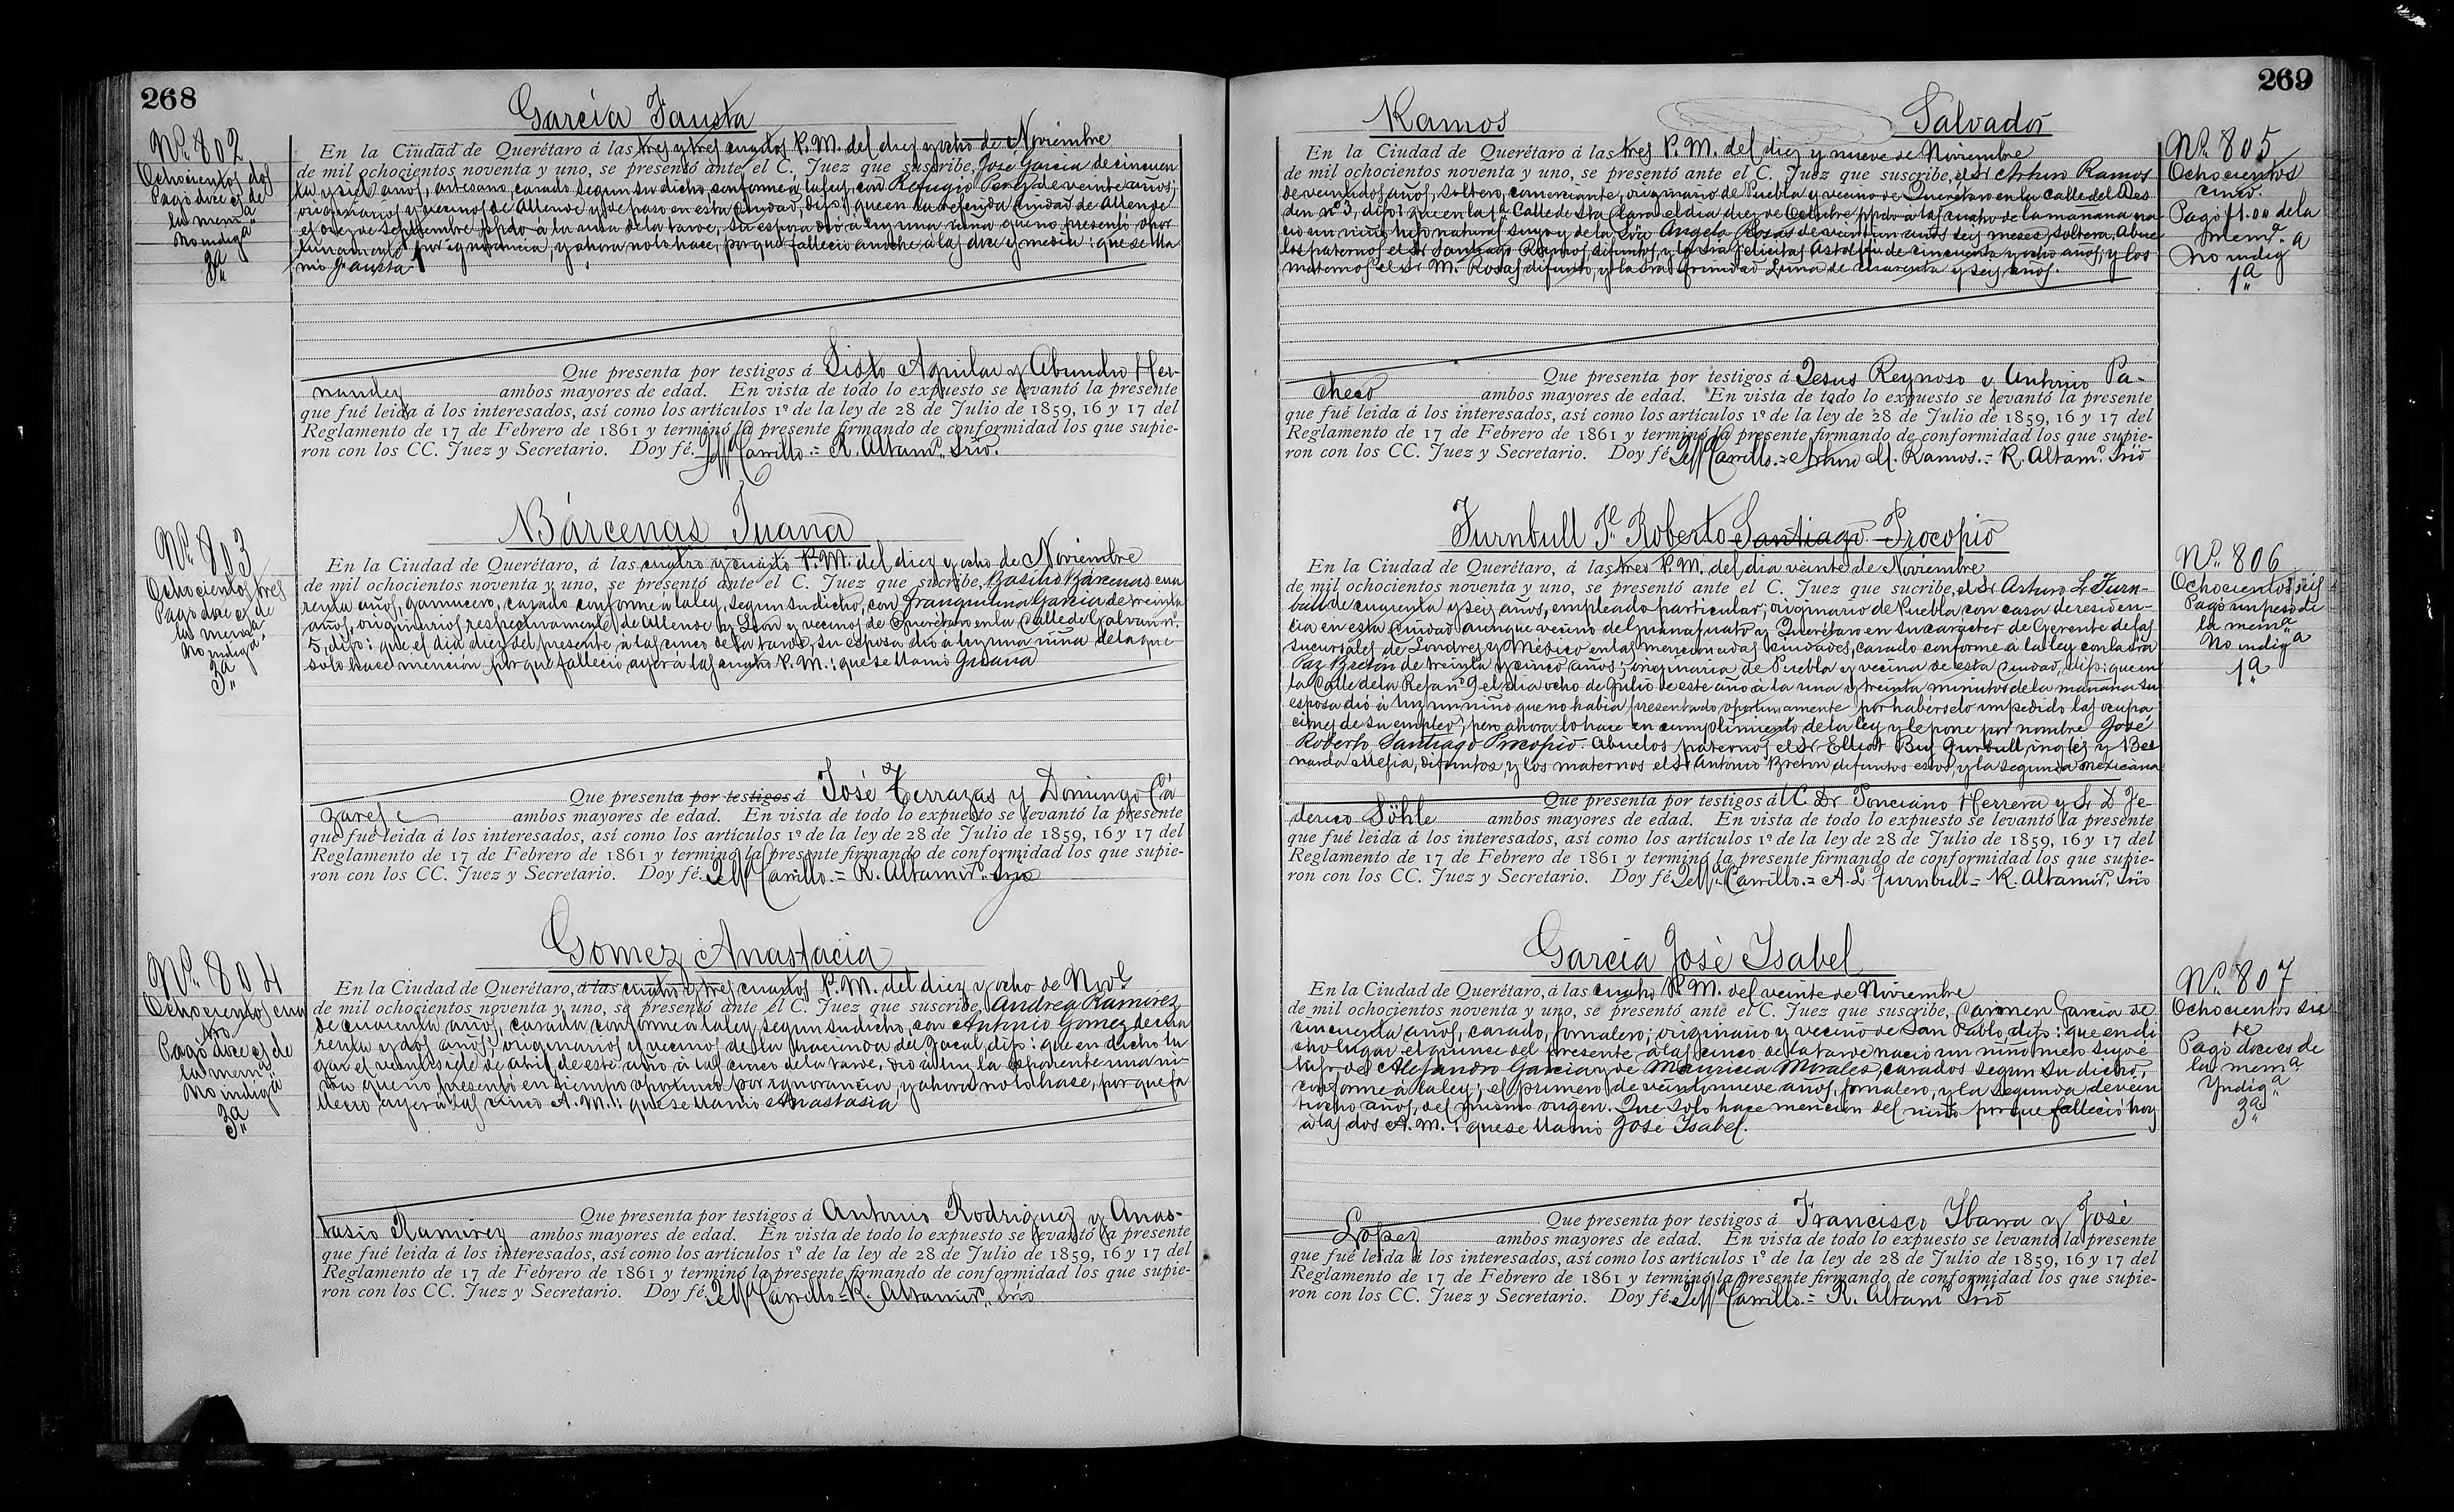 268
García Fausta
Nº 802
Ochocientos dos
Pagó doce cs de
la mema
No indiga
3a
En la Ciudad de Querétaro á las tres y tres cuartos P.M. del diez y ocho de Noviembre
de mil ochocientos noventa y uno, se presentó ante el C. Juez que suscribe, José García de cincuen
ta y seis años, artesano, casado segun su dicho, conforme a la ley, con Refugio Perez de veinte años,
originarios y vecinos de Allende y de paso en esta Ciudad, dijo: que en la referida Ciudad de Allende
el diez de Septiembre ppdo a la una de la tarde, su esposa dió a luz una niña que no presentó opor
tunamente por ignorancia, y ahora no lo hace, porque falleció anoche a las diez y media: que se lla
mó Fausta
Que presenta por testigos á Sisto Aguilar y Abundio Her-
nandez ambos mayores de edad. En vista de todo lo expuesto se levantó la presente
que fué leida á los interesados, así como los artículos 1º de la ley de 28 de Julio de 1859, 16 y 17 del
Reglamento de 17 de Febrero de 1861 y terminó la presente firmando de conformidad los que supie-
ron con los CC. Juez y Secretario. Doy fé. Carrillo.= R. Altamo. Srio.
Bárcenas Juana
Nº 803
Ochocientos tres
Pagó doce cs de
la mema
No indiga
3a
En la Ciudad de Querétaro, á las cuatro y cuarto P.M. del diez y ocho de Noviembre
de mil ochocientos noventa y uno, se presentó ante el C. Juez que sucribe, Basilio Bárcenas cua
renta años, gamucero, casado conforme a la ley, segun su dicho, con Tranquilina García de treinta
años, originarios respectivamente, de Allende y Leon y vecinos de Querétaro en la Calle de Galvan nº
5, dijo: que el dia diez del presente, a las cinco de la tarde, su esposa dió a luz una niña de la que
solo hace mención por que falleció ayer a las cuatro P.M.: que se llamó Juana
Que presenta por testigos á José Terrazas y Domingo Cá
zares ambos mayores de edad. En vista de todo lo expuesto se levantó la presente
que fué leida á los interesados, así como los artículos 1º de la ley de 28 de Julio de 1859, 16 y 17 del
Reglamento de 17 de Febrero de 1861 y terminó la presente firmando de conformidad los que supie-
ron con los CC. Juez y Secretario. Doy fé. Carrillo.= R. Altamir. Srio
Gomez Anastacia
Nº 804
Ochocientos cua
tro
Pagó doce cs de
la mema
No indiga
3a
En la Ciudad de Querétaro, á las cuatro y tres cuartos P.M. del diez y ocho de Nove
de mil ochocientos noventa y uno, se presentó ante el C. Juez que suscribe, Andrea Ramirez
de cuarenta años, casada conforme a la ley, segun su dicho, con Antonio Gomez de cua
renta y dos años, originarios y vecinos de la Hacienda del Jacal, dijo: que en dicho lu
gar el veintisiete de abril de este año a las cinco de la tarde, dió a luz, la esponente una ni-
ña que no presentó en tiempo oportuno por ignorancia, y ahora no lo hace, por que fa
lleció ayer a las cinco A.M.: que se llamó Anastasia
Que presenta por testigos á Antonio Rodriguez y Anas-
tasio Ramirez ambos mayores de edad. En vista de todo lo expuesto se levantó la presente
que fué leida á los interesados, así como los artículos 1º de la ley de 28 de Julio de 1859, 16 y 17 del
Reglamento de 17 de Febrero de 1861 y terminó la presente firmando de conformidad los que supie-
ron con los CC. Juez y Secretario. Doy fé. Carrillo.= R. Altamir. Srio
269
Ramos Salvador
Nº 805
Ochocientos
cinco.
Pagó $1.00 de la
mema
No indiga
1a
En la Ciudad de Querétaro á las tres P.M. del diez y nueve de Noviembre
de mil ochocientos noventa y uno, se presentó ante el C. Juez que suscribe, el Sr Arturo Ramos
de veintidos años, soltero, comerciante, originario de Puebla y vecino de Querétaro en la calle del Des
den nº 3, dijo: que en la 1a Calle de Sta Clara el dia diez de Octubre ppdo a las cuatro de la mañana na
ció un niño hijo natural suyo y de la Sra Angela Rosas de veintiun años seis meses, soltera, Abue
los paternos el Sr Santiago Ramos, difuntos, y la Sra Felicitas Astolfi de cincuenta y ocho años, y los
maternos el Sr M. Rosas difunto, y la Sra Trinidad Luna de cuarenta y seis años.
Que presenta por testigos á Jesus Reynoso y Antonio Pa-
checo ambos mayores de edad. En vista de todo lo expuesto se levantó la presente
que fué leida á los interesados, así como los artículos 1º de la ley de 28 de Julio de 1859, 16 y 17 del
Reglamento de 17 de Febrero de 1861 y terminó la presente firmando de conformidad los que supie-
ron con los CC. Juez y Secretario. Doy fé. Carrillo.= Arturo M. Ramos.= R. Altamo. Srio
Turnbull Je Roberto Santiago Procopio
Nº 806
Ochocientos seis
Pagó un peso de
la mema
No indiga
1a
En la Ciudad de Querétaro, á las tres P.M. del dia veinte de Noviembre
de mil ochocientos noventa y uno, se presentó ante el C. Juez que sucribe, el Sr Arturo L. Turn-
bull de cuarenta y seis años, empleado particular, originario de Puebla con casa de residen-
cia en esta Ciudad aunque vecino de Guanajuato y Querétaro en su carácter de Gerente de las
sucursales de Londres y México en las mencionadas Ciudades, casado conforme a la ley con la Sra
Paz Breton de treinta y cinco años, originaria de Puebla y vecina de esta Ciudad, dijo: que en
la Calle de la Refa nº 9 el dia ocho de Julio de este año a la una y treinta minutos de la mañana su
esposa dió a luz un niño que no habia presentado oportunamente por habérselo impedido las ocupa
ciones de su empleo, pero ahora lo hace en cumplimiento de la ley y le pone por nombre José
Roberto Santiago Procopio. Abuelos paternos el Sr Elliot Turnbull, inglés y Ber
narda Mejia, difuntos, y los maternos el Sr Antonio Breton, difuntos estos, y la segunda mexicana
Que presenta por testigos á l C. Dr Ponciano Herrera y Sr D Fe-
derico Söhle ambos mayores de edad. En vista de todo lo expuesto se levantó la presente
que fué leida á los interesados, así como los artículos 1º de la ley de 28 de Julio de 1859, 16 y 17 del
Reglamento de 17 de Febrero de 1861 y terminó la presente firmando de conformidad los que supie-
ron con los CC. Juez y Secretario. Doy fé. Carrillo.= A. L Turnbull= R. Altamir. Srio
García José Isabel
Nº 807
Ochocientos sie
te
Pagó doce cs de
la mema
Yndiga
3a
En la Ciudad de Querétaro, á las cuatro P.M. del veinte de Noviembre
de mil ochocientos noventa y uno, se presentó ante el C. Juez que suscribe, Carmen García de
cincuenta años, casado, jornalero, originario y vecino de San Pablo, dijo: que en di
cho lugar el quince del presente, a las cinco de la tarde nació un niño nieto suyo é
hijo de Alejandro García y de Mauricia Morales, casados segun su dicho,
conforme a la ley; el primero de veintinueve años, jornalero, y la segunda de vein
tiocho años, del mismo origen. Que solo hace mención del niño porque falleció hoy
a las dos A.M.: que se llamó José Isabel.
Que presenta por testigos á Francisco Ibarra y José
Lopez ambos mayores de edad. En vista de todo lo expuesto se levantó la presente
que fué leida á los interesados, así como los artículos 1º de la ley de 28 de Julio de 1859, 16 y 17 del
Reglamento de 17 de Febrero de 1861 y terminó la presente firmando de conformidad los que supie-
ron con los CC. Juez y Secretario. Doy fé. Carrillo.= R. Altamo Srio